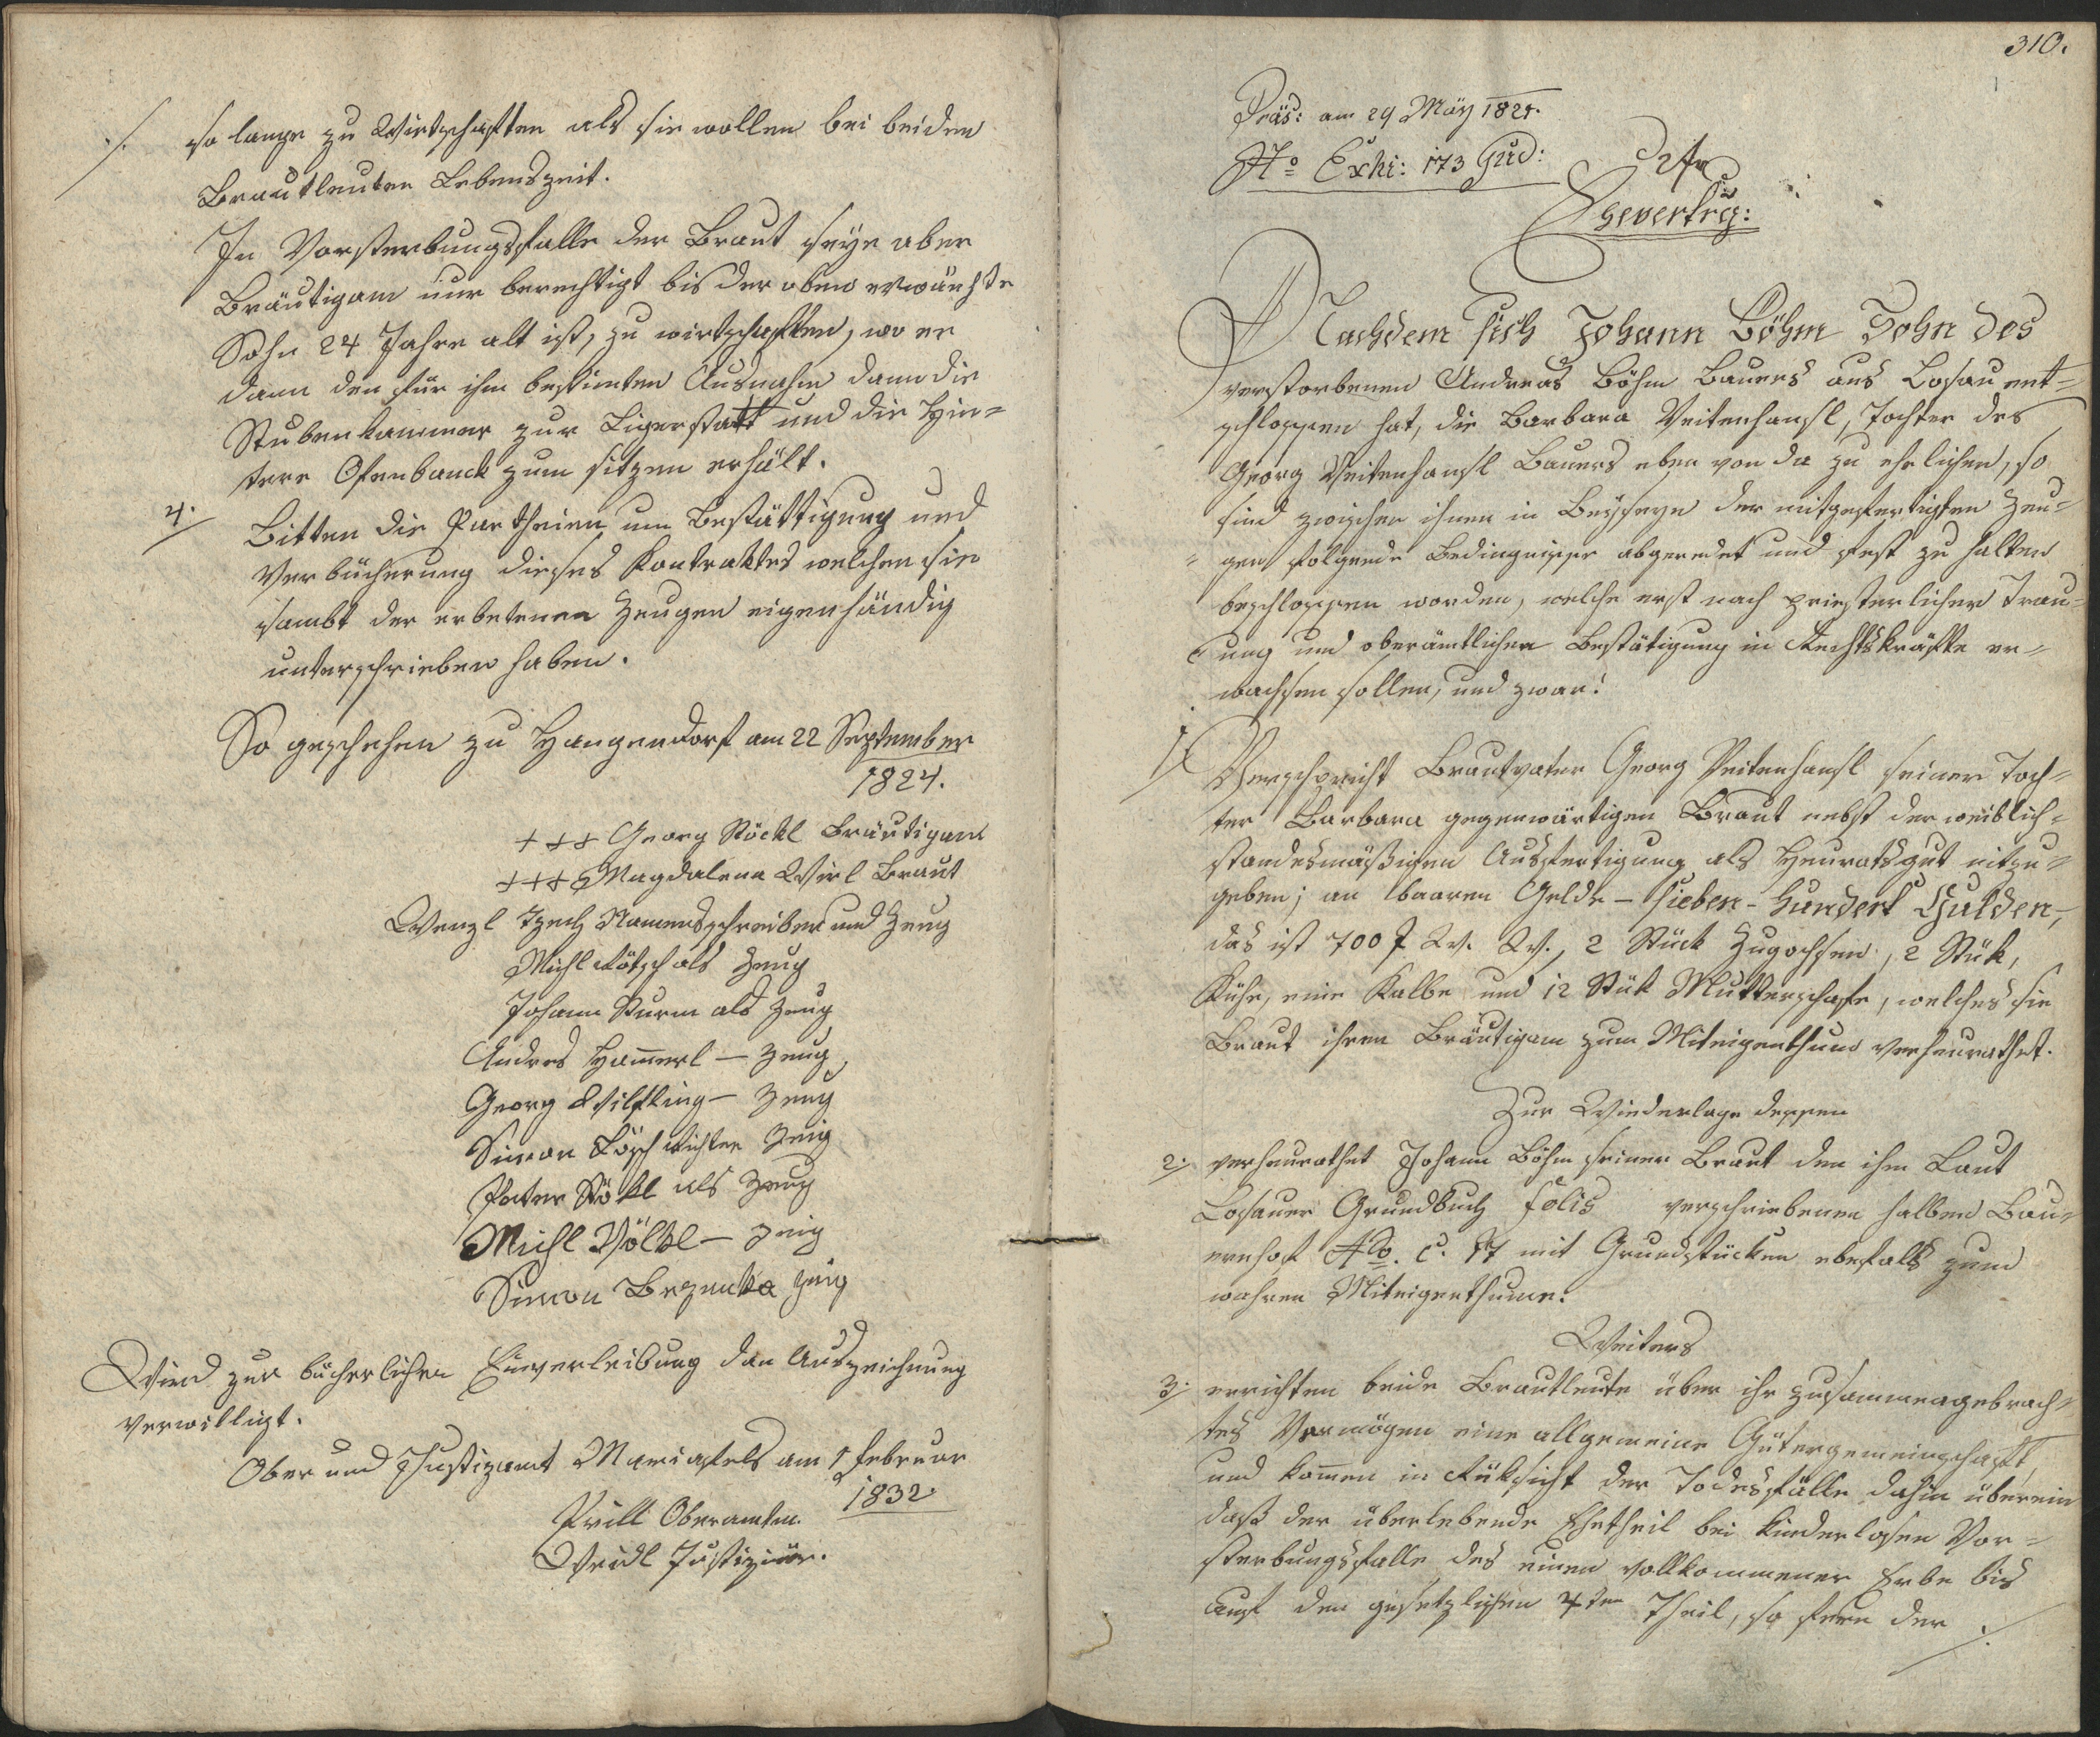 so lange zu Wirtschaften als sie wollen bei beiden
Brautleuten Lebenszeit.
In Vorsterbungsfalle der Braut seye aber
Bräutigam nur berechtigt bis der oben erwänhte
Sohn 24 Jahre alt ist, zu wirtschaften, wo er
dann den für ihm bestimten Ausnahm dann die
Stubenkammer zur Ligerstatt und die Hin=
tere Ofenbanck zum sitzen erhält.
4. Bitten die Partheien um Bestättigung und
Verbücherung dieses Kontraktes welchen sie
sambt der erbetenen Zeugen eigenhändig
unterschrieben haben.
So geschehen zu Hangendorf am 22 September
1824.
+++ Georg Stöckl Bräutigam
+++ Magdalena Wirl Braut
Wenzl Zech Namensschreiber und Zeug
Michl Kötsch als Zeug
Johann Sturm als Zeug
Andres Ham̄erl — Zeug
Georg Wilfling — Zeug
Simon Lösch Richter Zeig
Peter Stökl als Zeug
Michl Völkl — Zeig
Simon Bezenka Zeig
Wird zur bücherlichen Einverleibung dan Auszeichnung
verwilligt.
Ober und Justizamt Mariafels am 1 Februar
1832.
Prill Oberamtm.
Weidl Justiziär.
310.
Präs: am 29 Mäy 1821.
No Exhi: 173 Jud:
Ehevertrg:
Nachdem sich Johann Böhm Sohn des
verstorbenen Andreas Böhm Bauers aus Losau ent=
schlossen hat, die Barbara Veitenhansl, Tochter des
Georg Veitenhansl Bauers eben von da zu ehelichen, so
sind zwischen ihnen in Beyseyn der mitgefertigten Zeu=
gen folgende Bedingnisse abgeredet und fest zu halten
beschlossen worden, welche erst nach priesterlicher Trau=
ung und oberämtlichen Bestätigung in Rechtskräfte er=
wachsen sollen, und zwar:
1. Verspricht Brautvater Georg Veitenhansl seiner Toch=
ter Barbara gegenwärtigen Braut nebst der weiblich=
standesmäßigen Ausfertigung als Heuratsgut mitzu=
geben; an baaren Gelde – sieben – Hundert Gulden,
das ist 700 f W. W., 2 Stück Zugochsen, 2 Stük,
Kühe, eine Kalbe und 12 Stük Mutterschafe, welches sie
Braut ihren Bräutigam zum Miteigenthum verheurathet.
Zur Wiederlage dessen
2. verheurathet Johann Böhm seiner Braut den ihm Laut
Losauer Grundbuch folis verschriebenen halben Bau=
ernhof No. C. 17 mit Grundstücken ebefals zum
wahren Miteigenthume.
Weiters
3. errichten beide Brautleute über ihr zusammengebrach=
tes Vermögen eine allgemeine Gütergemeinschaft,
und kom̄en in Rüksicht der Todesfälle dahin überein
daß der überlebende Ehetheil bei kinderlosen Vor=
sterbungsfalle des einen vollkommener Erbe bis
auf den gesetzlichen 4ten Theil, so fern der